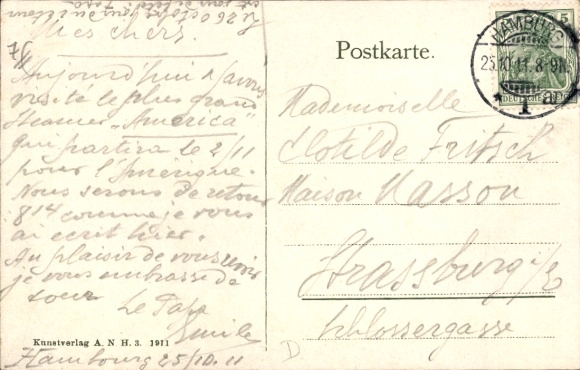 Mes chers
Aujourd'hui j'avons
visité le plus grand
Steamer "America"
qui partira le 2/11
pour l'Amérique.
Nous serons de retour
8 14 comme je vous
ai écrit hier.
Au plaisir de vous revoir
je vous embrasse de
coeur
Le Papa
Emile
Hambourg 25/10.11
Kunstverlag A. N. H. 3. 1911
Postkarte.
HAMBURG
25.10.11. 8-9N.
* 1 a
5
Mademoiselle
Clotilde Fritsch
Maison Masson
Strassburg i/E
Schlossergasse
D